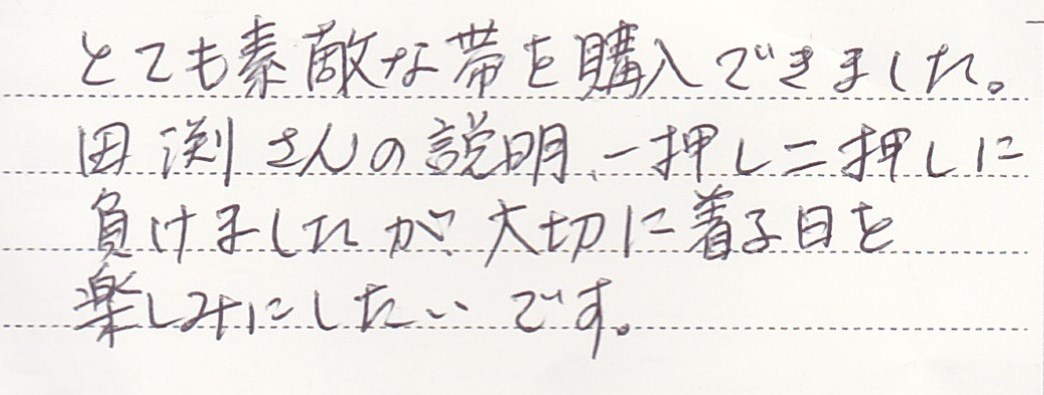 とても素敵な帯を購入できました。
田渕さんの説明、一押し二押しに
負けましたが、大切に着る日を
楽しみにしたいです。